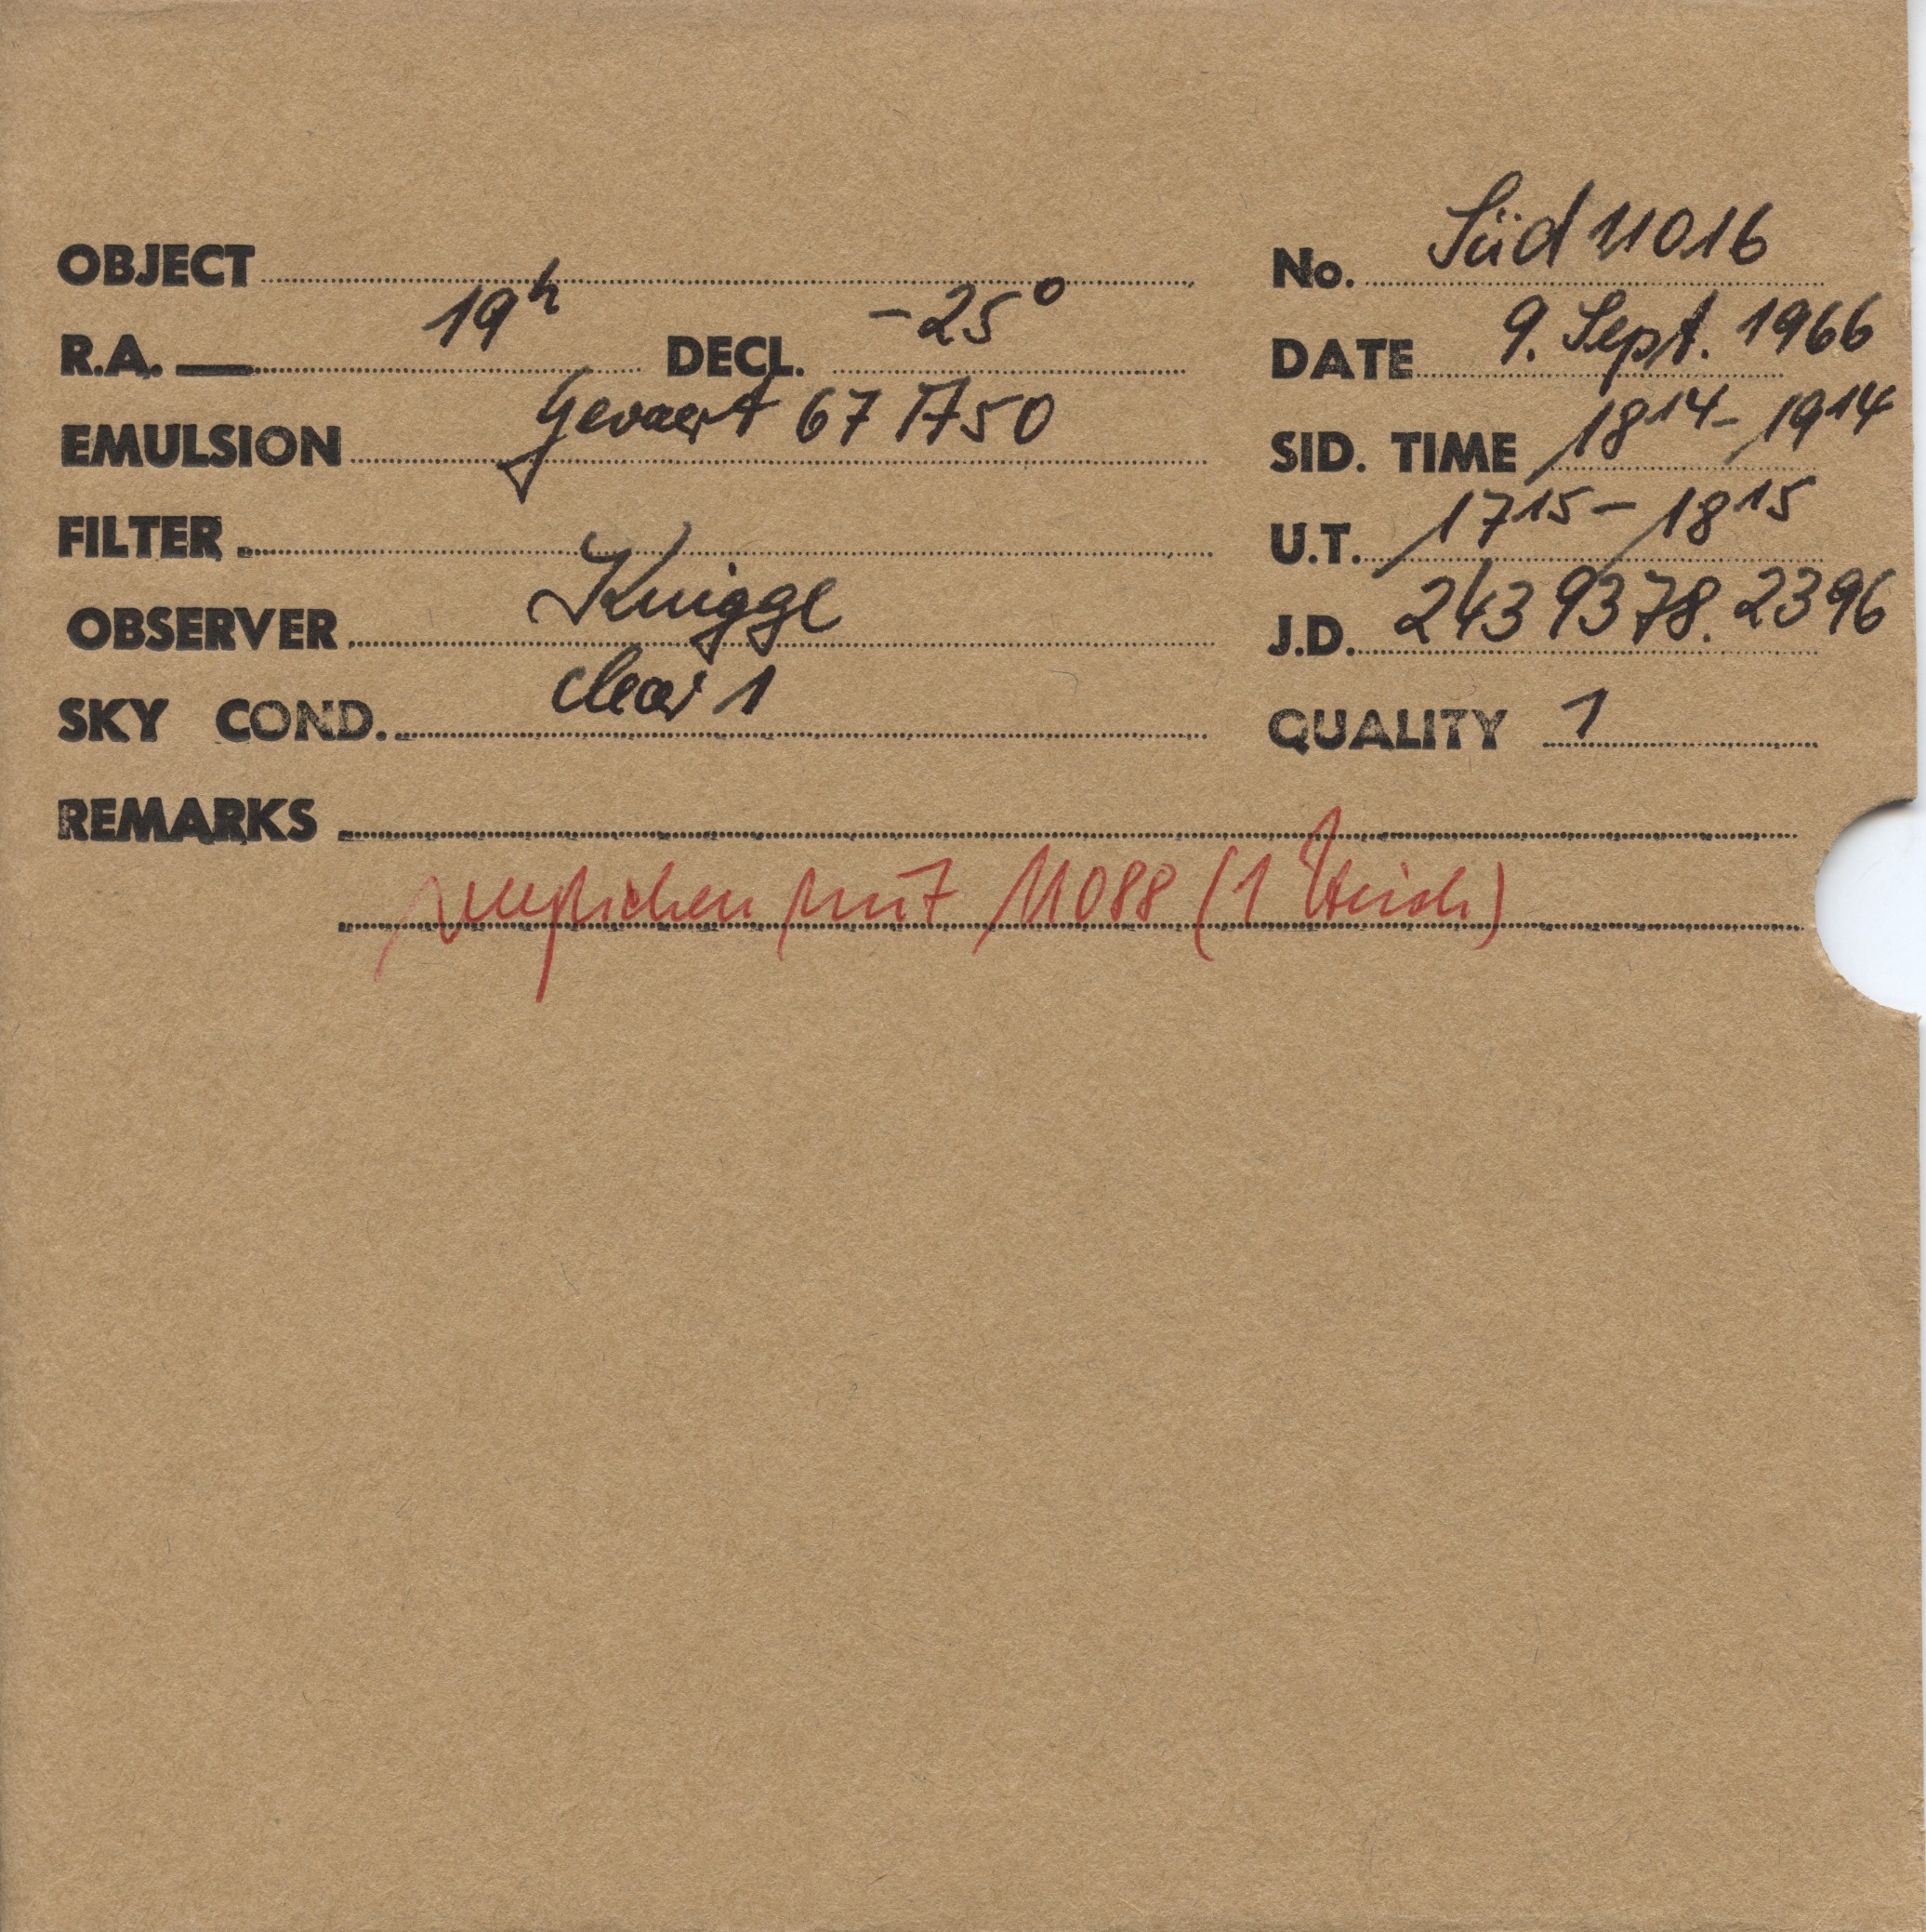 OBJECT
No. Süd 11016
R.A. — 19ʰ DECL. -25°
DATE 9. Sept. 1966
EMULSION Gevaert 67 A50
SID. TIME 18¹⁴ - 19¹⁴
FILTER
U.T. 17¹⁵ - 18¹⁵
OBSERVER Knigge
J.D. 243 9378.2396
SKY COND. clear 1
QUALITY 1
REMARKS
verglichen mit 11088 (1 Strich)